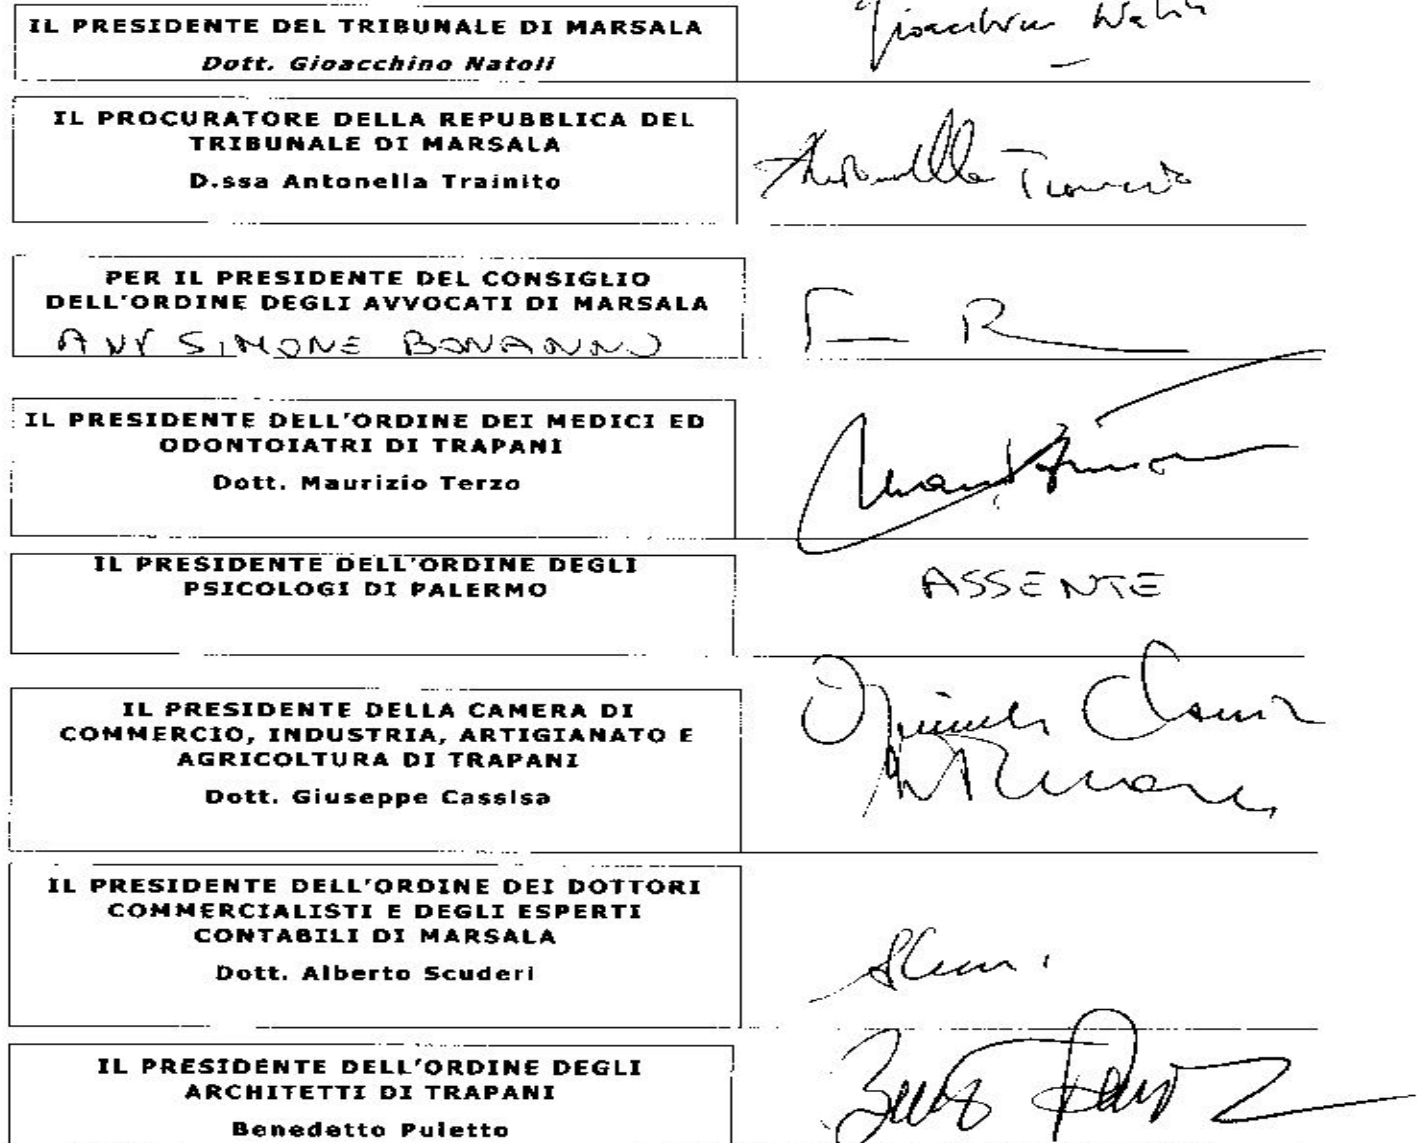 IL PRESIDENTE DEL TRIBUNALE DI MARSALA
Dott. Gioacchino Natoli
IL PROCURATORE DELLA REPUBBLICA DEL
TRIBUNALE DI MARSALA
D.ssa Antonella Trainito
PER IL PRESIDENTE DEL CONSIGLIO
DELL'ORDINE DEGLI AVVOCATI DI MARSALA
AVV SIMONE BONANNO
IL PRESIDENTE DELL'ORDINE DEI MEDICI ED
ODONTOIATRI DI TRAPANI
Dott. Maurizio Terzo
IL PRESIDENTE DELL'ORDINE DEGLI
PSICOLOGI DI PALERMO
ASSENTE
IL PRESIDENTE DELLA CAMERA DI
COMMERCIO, INDUSTRIA, ARTIGIANATO E
AGRICOLTURA DI TRAPANI
Dott. Giuseppe Cassisa
IL PRESIDENTE DELL'ORDINE DEI DOTTORI
COMMERCIALISTI E DEGLI ESPERTI
CONTABILI DI MARSALA
Dott. Alberto Scuderi
IL PRESIDENTE DELL'ORDINE DEGLI
ARCHITETTI DI TRAPANI
Benedetto Puletto